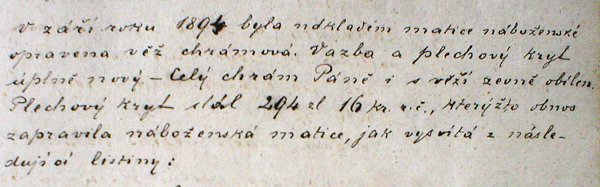 V září roku 1894 byla nákladem matice náboženské
opravena věž chrámová. Vazba a plechový kryt
úplně nový. – Celý chrám Páně i s věží zevně obílen.
Plechový kryt stál 294 zl 16 kr. r. č., kterýžto obnos
zapravila náboženská matice, jak vysvítá z násle-
dující listiny: